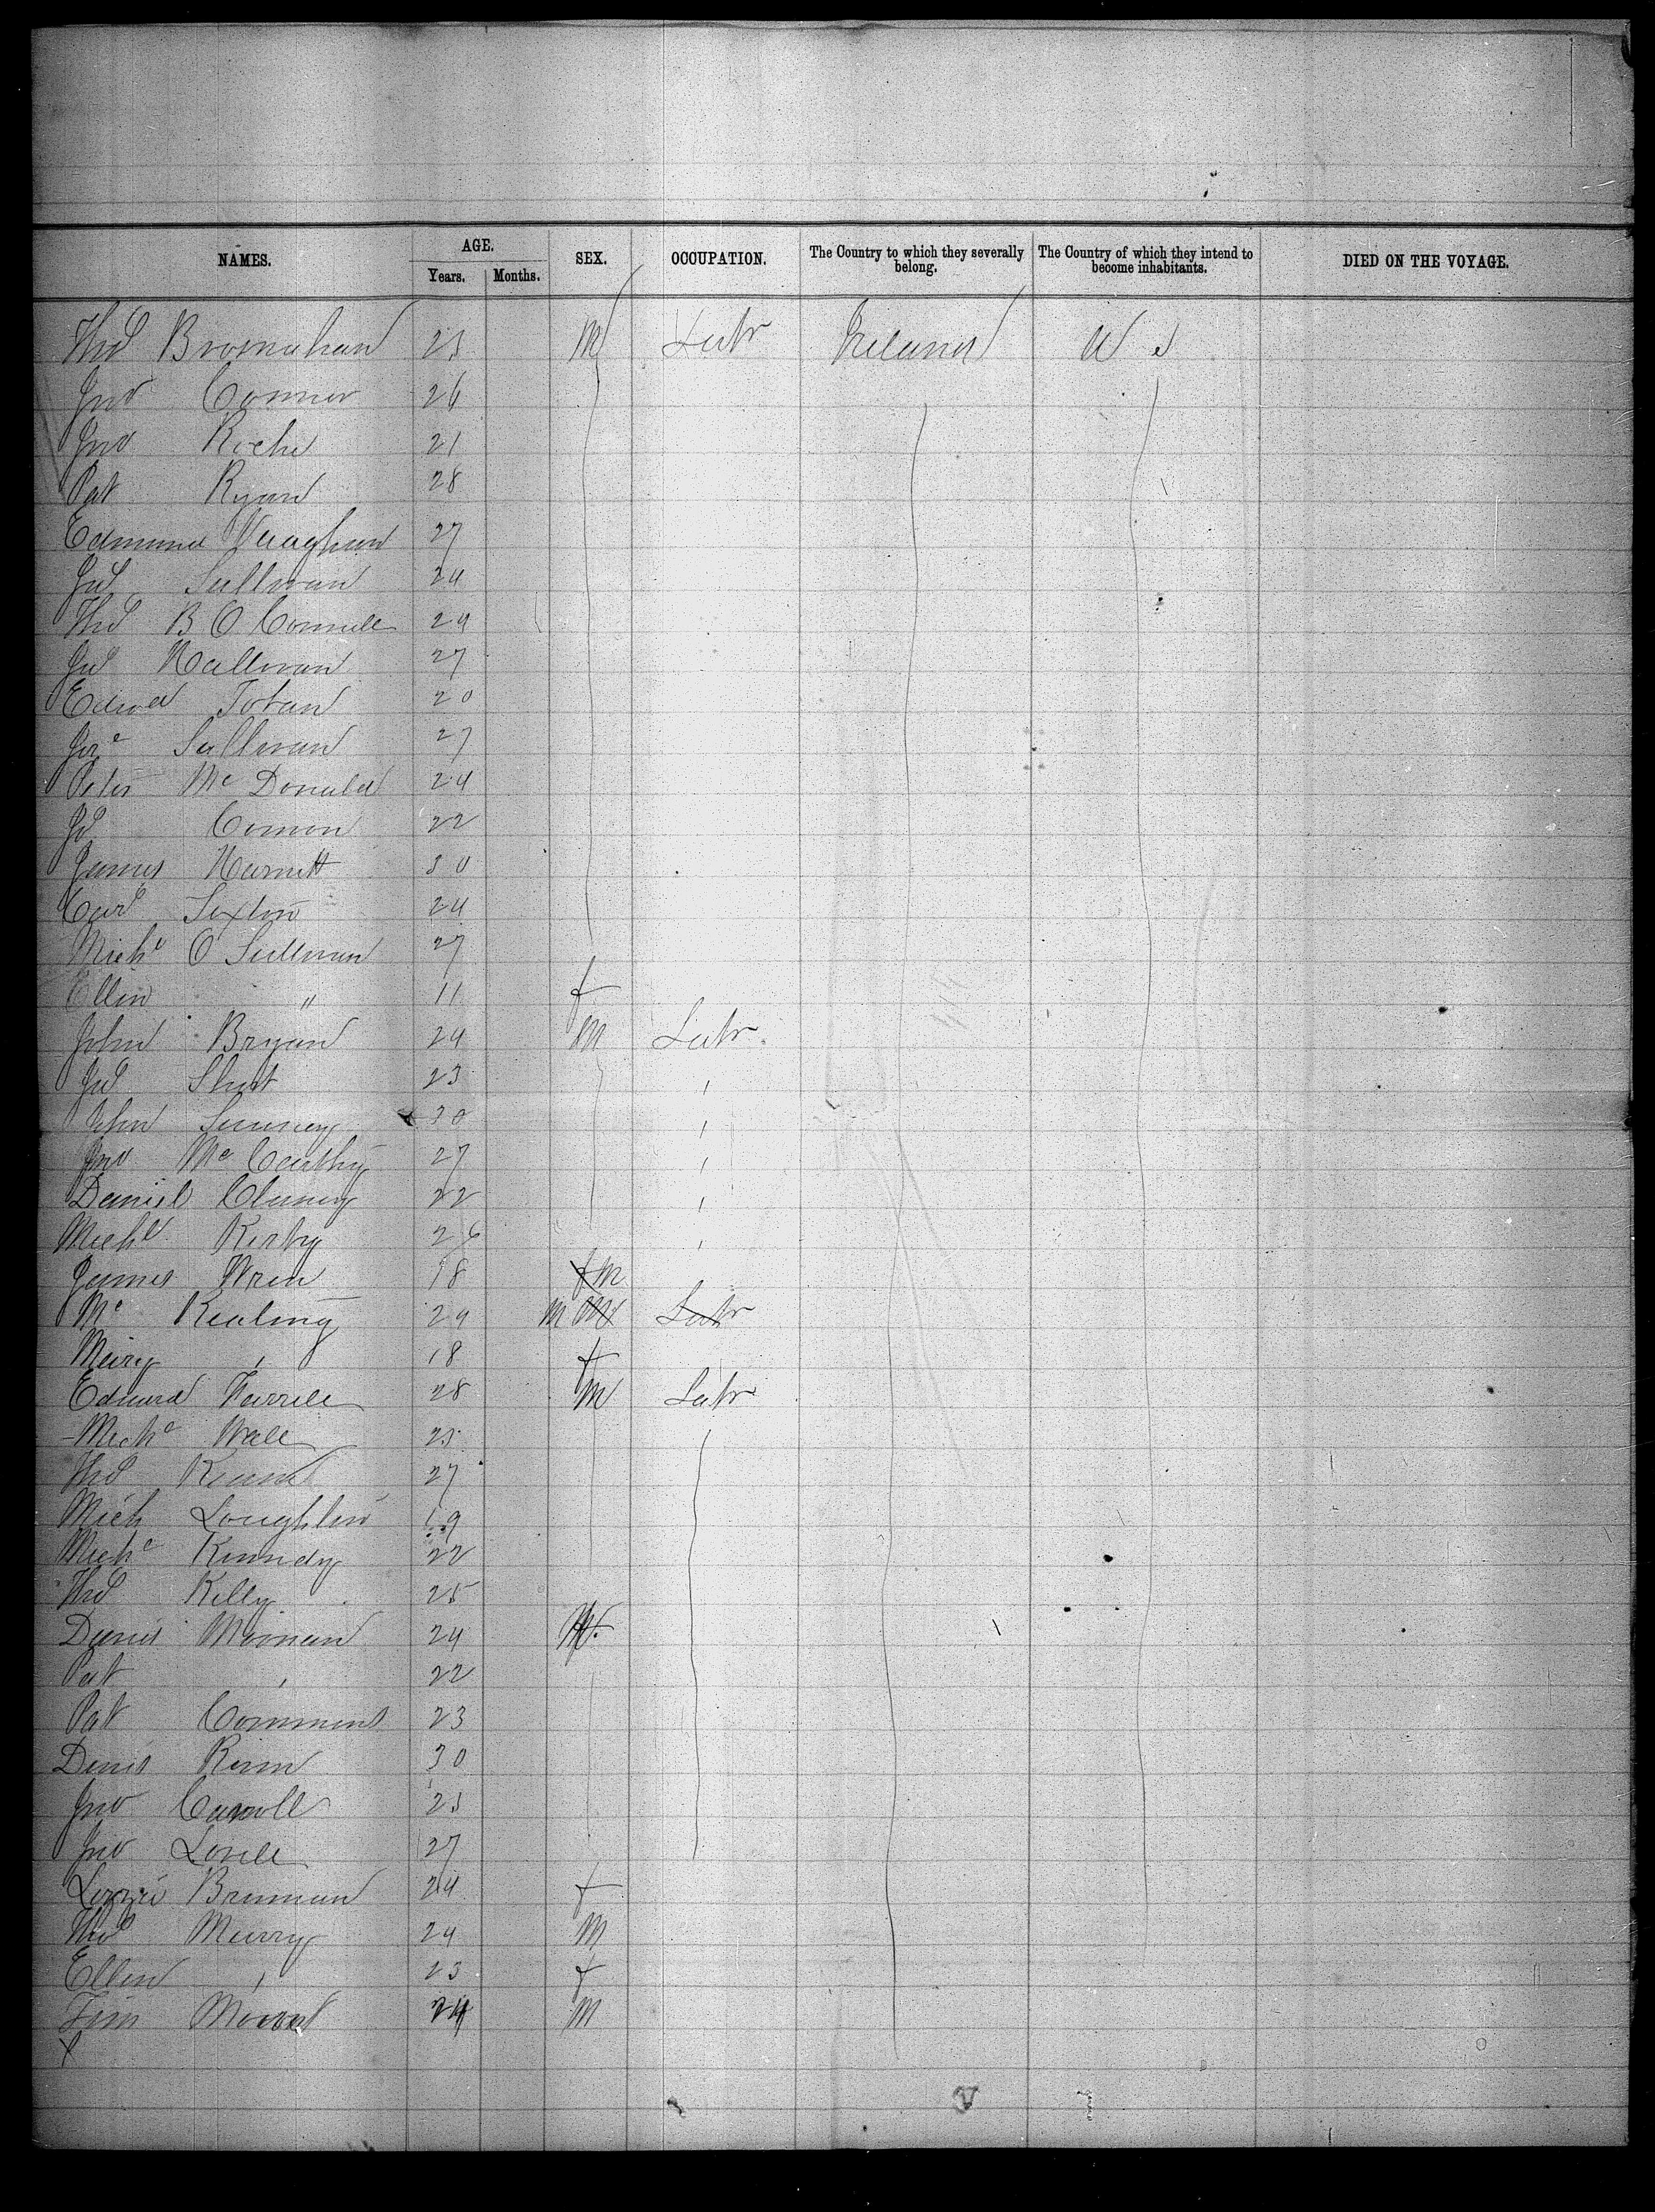 NAMES. AGE. Years. Months. SEX. OCCUPATION. The Country to which they severally belong. The Country of which they intend to become inhabitants. DIED ON THE VOYAGE.
Thos Brosnahan 23 M Labr Ireland U S
Jno Connor 26
Jno Roche 21
Pat Ryan 28
Edmund Vaughan 27
Jas Sullivan 24
Thos B O Connell 24
Jas Hallinan 27
Edwd Toban 20
Sullivan 27
Peter Mc Donald 24
22
James Harnett 30
Sexton 24
Michl O Sullivan 27
Ellen " 11 f
John Bryan 24 M Labr
Jas 23
John 30
Jno Mc Carthy 27
Daniel Clancy 22
Michl Kirby 26
James Wren 18 M
Kealing 29 M
Mary , 18 f
Edward Farrell 28 M Labr
Michl Wall 25
Thos 27
Mich Loughlin 19
Michl Kennedy 22
Thos Kelly 25
Denis 24 M
Pat , 22
Pat Commins 23
Denis 30
Jno Carroll 23
Jno 27
Lizzie Brennan 24 f
Thos Murry 24 M
Ellen , 23 f
Tim 24 M
X